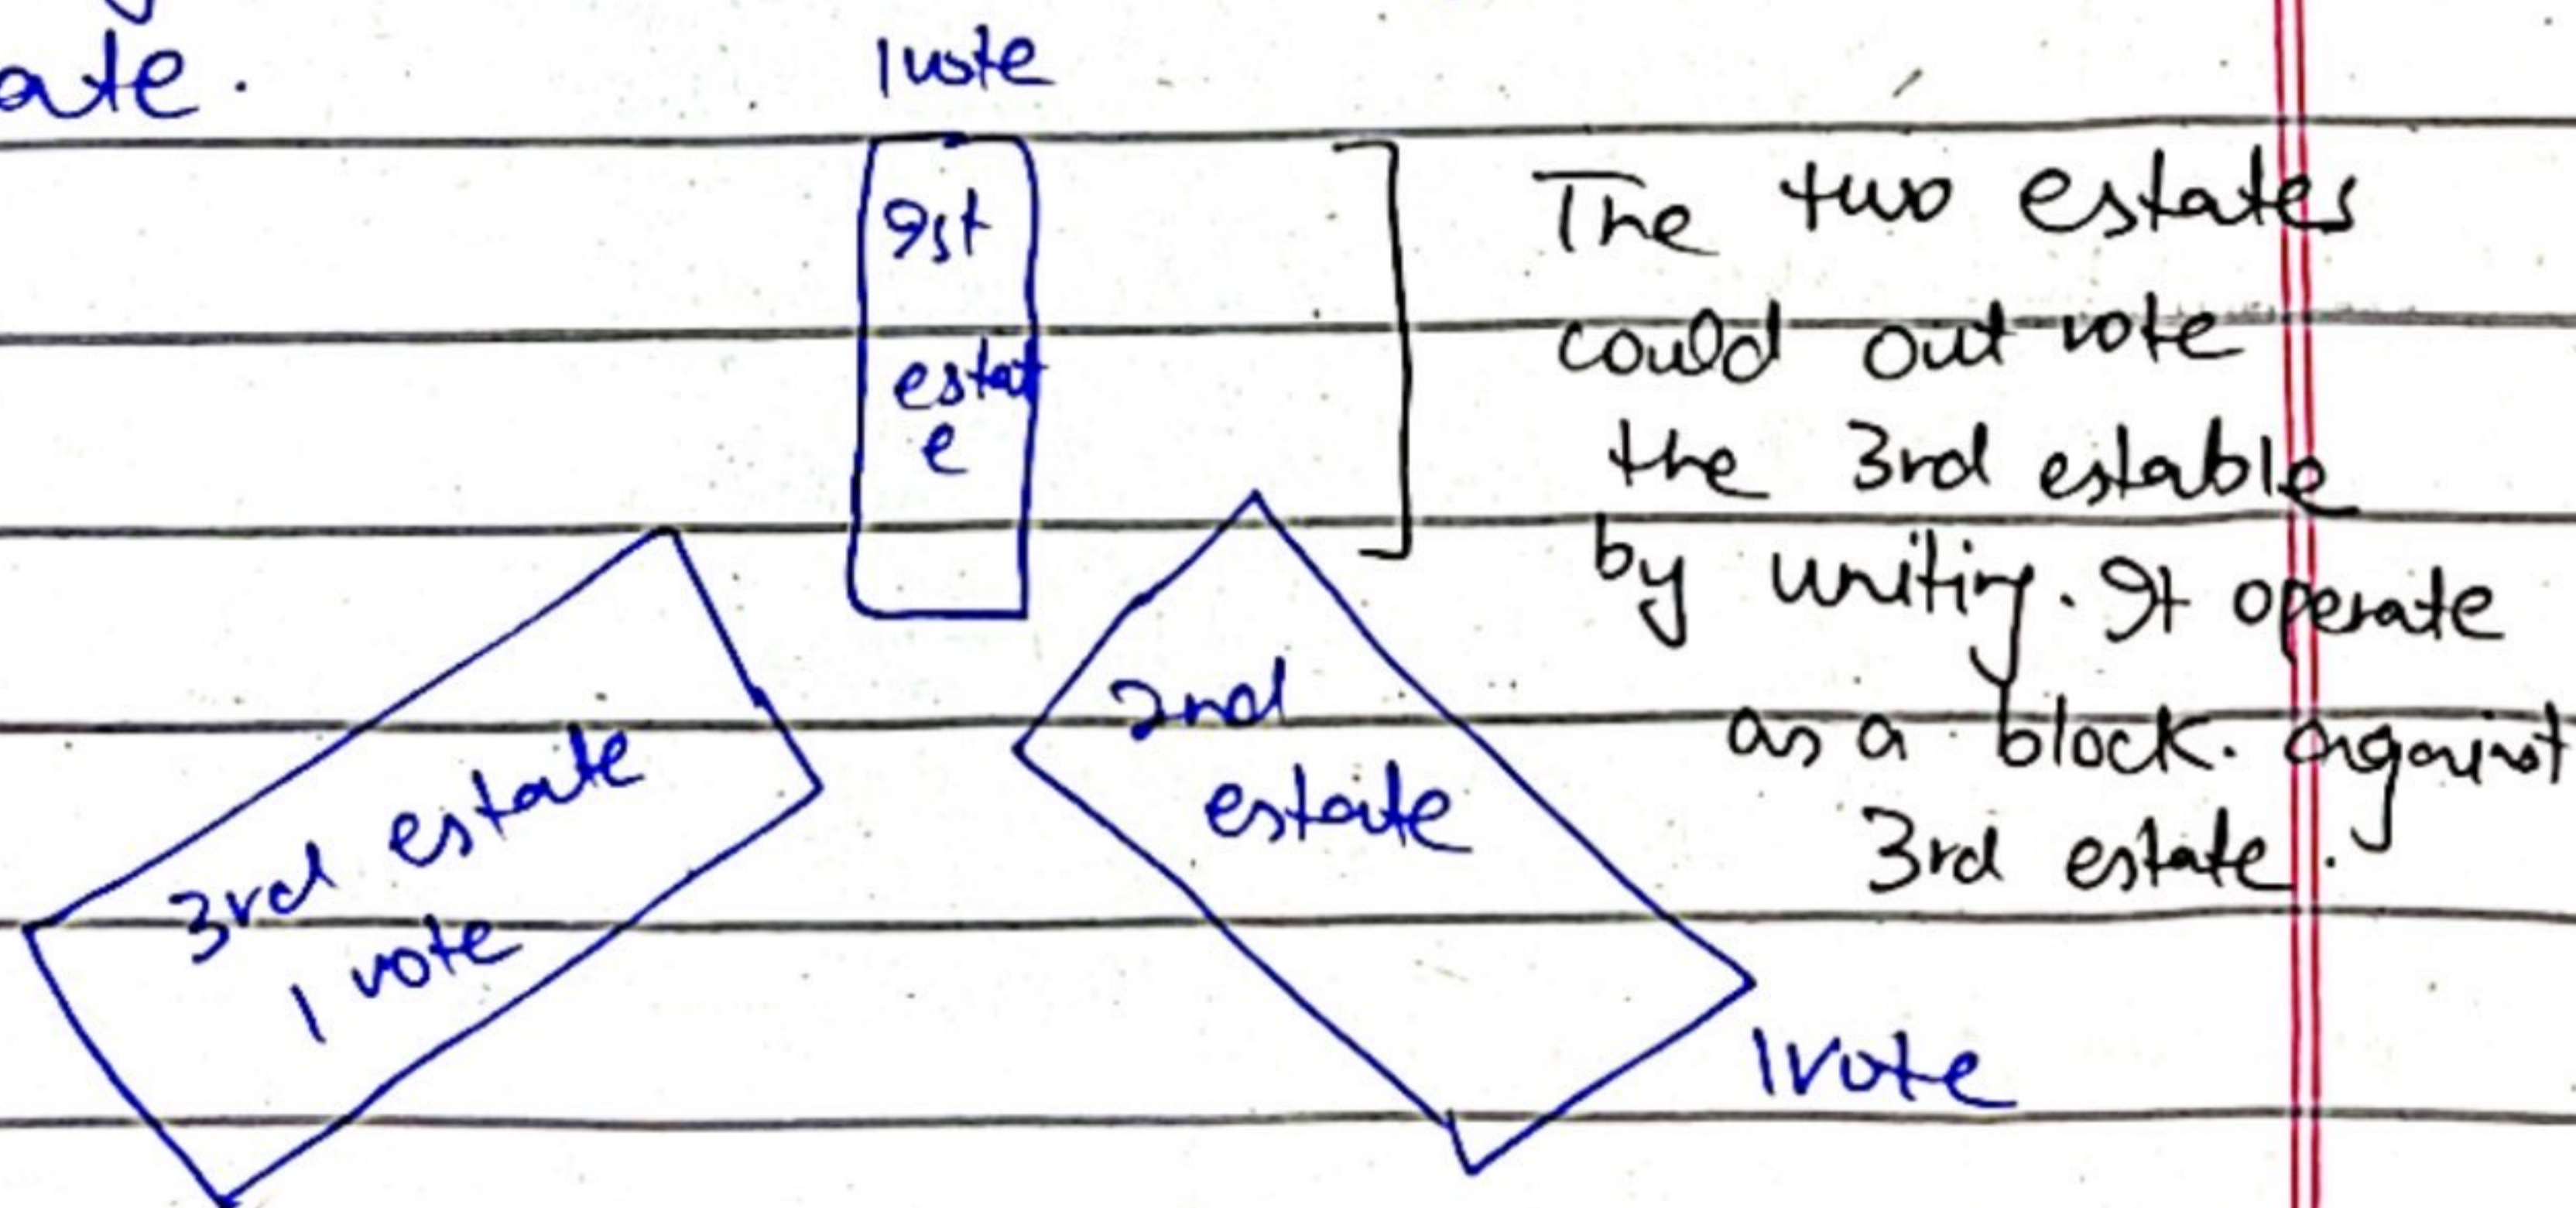 ate.
1 vote
Ist
estat
e
The two estates
could out vote
the 3rd estable
by writing. It operate
as a block. against
3rd estate.
2nd
estate
3rd estate
1 vote
1 vote